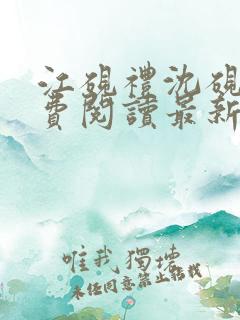 江硯禮沈硯
費閱讀最新
唯我獨壇
未經同意禁止轉載